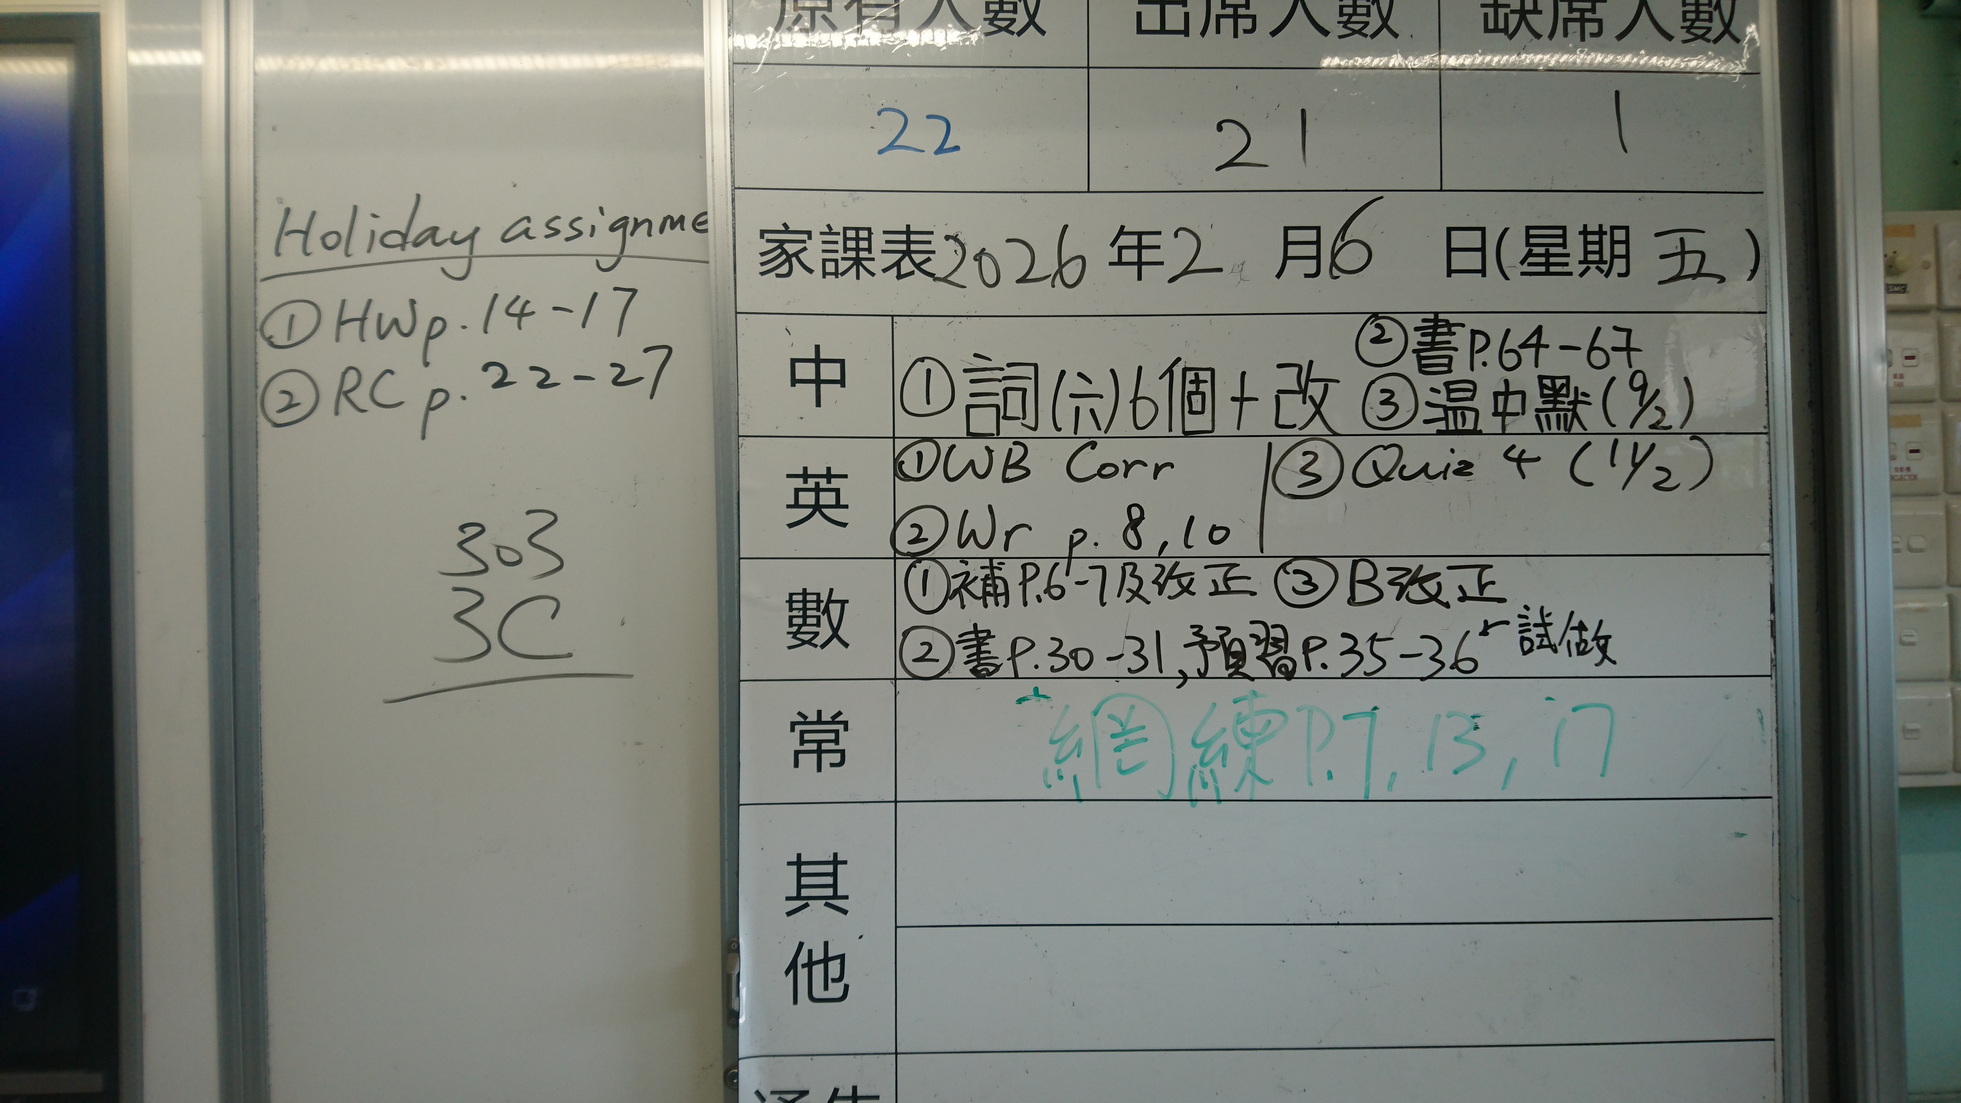 Holiday assignme
① HW p.14-17
② RC p.22-27
303
3C
原有人數 出席人數 缺席人數
22 21 1
家課表2026年2月6日(星期五)
中
①詞(六)6個+改
②書P.64-67
③温中默(9/2)
英
①WB Corr
②Wr p. 8,10
③Quiz 4 (11/2)
數
①補P.6-7及改正 ③B改正
②書P.30-31,預習P.35-36 試做
常
網練P.7, 13, 17
其他
通告